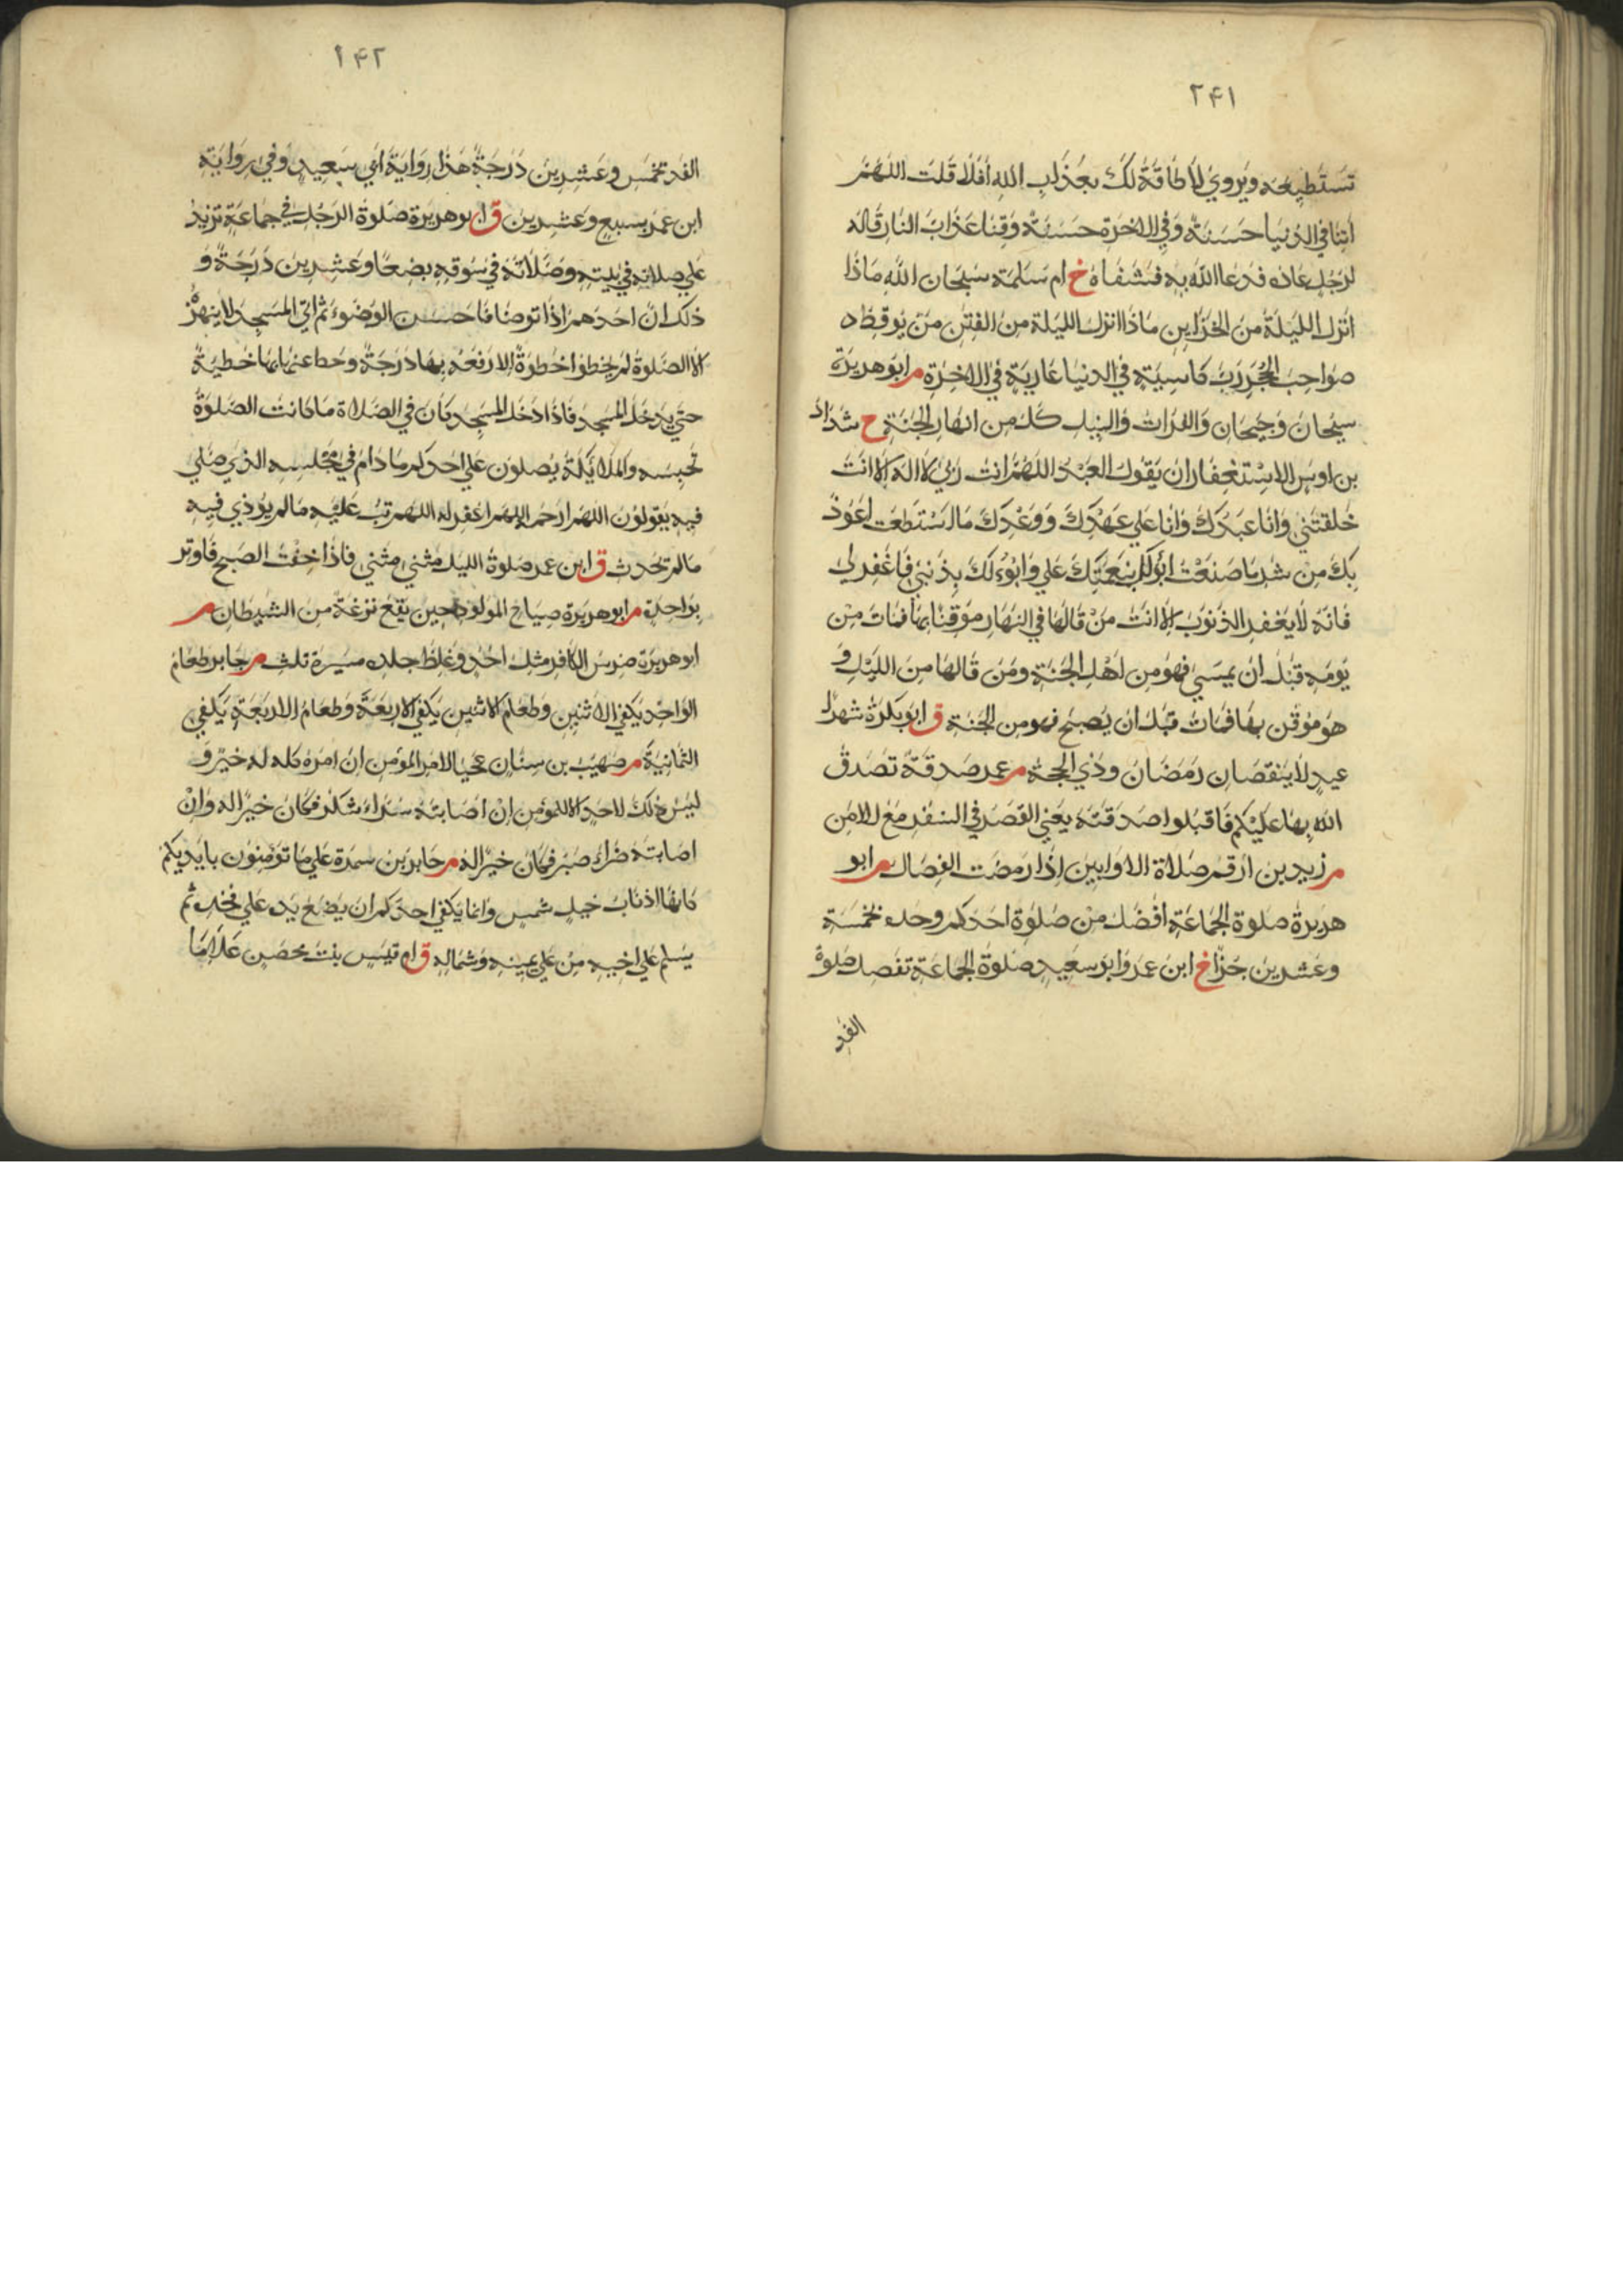 ٢٤١
تستطيعه ويروي لا طاقة لك بعذاب الله أفلا قلت اللهم
آتنا في الدنيا حسنة وفي الاخرة حسنة وقنا عذاب النار قاله
لرجل عاده فدعا الله به فشفاه خ ام سلمة سبحان الله ماذا
انزل الليلة من الخزاين ماذا انزل الليلة من الفتن من يوقظ
صواحب الحجر رب كاسية في الدنيا عارية في الاخرة م ابو هريرة
سيحان وجيحان والفرات والنيل كل من انهار الجنة خ شداد
بن اوس الاستغفار ان يقول العبد اللهم انت ربي لا اله الا انت
خلقتني وانا عبدك وانا علي عهدك ووعدك ما استطعت اعوذ
بك من شر ما صنعت ابوء لك بنعمتك علي وابوء لك بذنبي فاغفر لي
فانه لا يغفر الذنوب الا انت من قالها في النهار موقنا بها فمات من
يومه قبل ان يمسي فهو من اهل الجنة ومن قالها من الليل و
هو موقن بها فمات قبل ان يصبح فهو من الجنة ق ابو بكرة شهرا
عيد لا ينقصان رمضان وذي الحجة م عمر صدقة تصدق
الله بها عليكم فاقبلوا صدقته يعني القصر في السفر مع الامن
م زيد بن ارقم صلاة الاوابين اذا رمضت الفصال م ابو
هريرة صلوة الجماعة افضل من صلوة احدكم وحده بخمسة
وعشرين جزا خ ابن عمر وابو سعيد صلوة الجماعة تفضل صلوة
الفذ
٢٤٢
الفذ بخمس وعشرين درجة هذا رواية ابي سعيد وفي رواية
ابن عمر بسبع وعشرين ق ابو هريرة صلوة الرجل في جماعة تزيد
علي صلاته في بيته وصلاته في سوقه بضعا وعشرين درجة و
ذلك ان احدهم اذا توضا فاحسن الوضوء ثم اتي المسجد لا ينهزه
الا الصلوة لم يخط خطوة الا رفعه بها درجة وحط عنه بها خطيئة
حتي يدخل المسجد فاذا دخل المسجد كان في الصلاة ما كانت الصلوة
تحبسه والملائكة يصلون علي احدكم ما دام في مجلسه الذي صلي
فيه يقولون اللهم ارحم اللهم اغفر له اللهم تب عليه ما لم يؤذي فيه
ما لم يحدث ق ابن عمر صلوة الليل مثني مثني فاذا خفت الصبح فاوتر
بواحدة م ابو هريرة صياح المولود حين يقع نزغة من الشيطان م
ابو هريرة ضرس الكافر مثل احد وغلظ جلده مسيرة ثلث م جابر طعام
الواحد يكفي الاثنين وطعام الاثنين يكفي الاربعة وطعام الاربعة يكفي
الثمانية م صهيب بن سنان عجبا لامر المؤمن ان امره كله له خير و
ليس ذلك لاحد الا للمومن ان اصابته سراء شكر فكان خيرا له وان
اصابته ضراء صبر فكان خيرا له م جابر بن سمرة علي ما تؤمنون بايديكم
كانها اذناب خيل شمس وانما يكفي احدكم ان يضع يده علي فخذه ثم
يسلم علي اخيه من علي يمينه وشماله ق ام قيس بنت محصن علاما